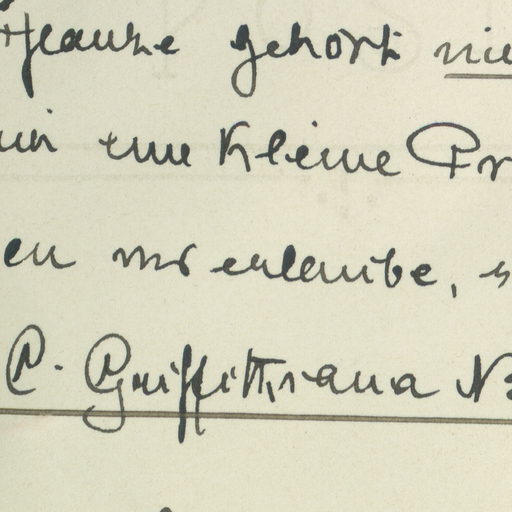 Pflanze gehört
eine kleine
en mir erlaube,
C. Griffithiana